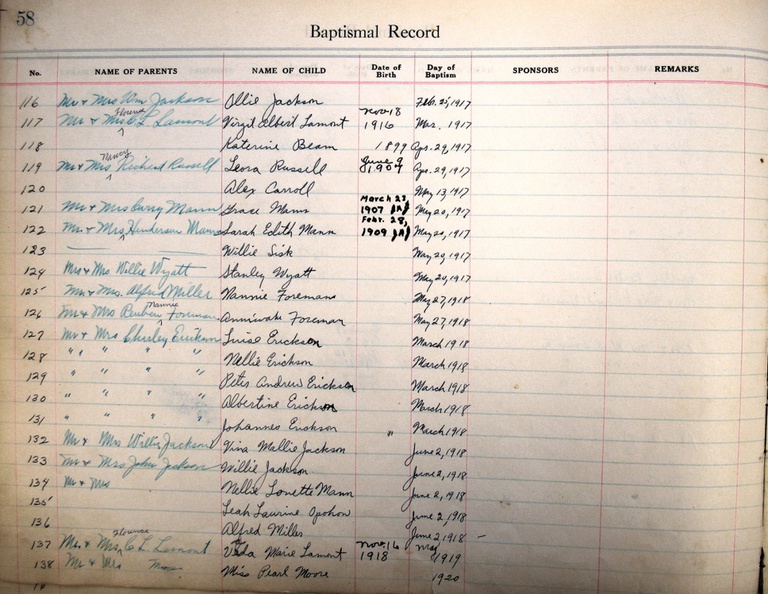 58
Baptismal Record
No. NAME OF PARENTS NAME OF CHILD Date of Birth Day of Baptism SPONSORS REMARKS
116 Mr + Mrs Wm Jackson Ollie Jackson Feb. 25, 1917
117 Mr + Mrs Florence C L. Lamont Virgil Albert Lamont Nov 18 1916 Mar. 1917
118 Katerine Beam 1899 Apr. 29, 1917
119 Mr + Mrs Nancy Richard Russell Leora Russell June 9 1904 Apr. 29, 1917
120 Alex Carroll May 13, 1917
121 Mr + Mrs Mann Grace Mann March 23 1907 May 20, 1917
122 Mr + Mrs Henderson Mann Sarah Edith Mann Febr. 28, 1909 May 20, 1917
123 Willie Sisk May 20, 1917
124 Mr + Mrs Willie Wyatt Stanley Wyatt May 20, 1917
125 Mr + Mrs. Alfred Miller Nannie Foremans May 27, 1918
126 Mr + Mrs Reuben Nannie Foreman Anniwake Foreman May 27, 1918
127 Mr + Mrs Charley Erickson Luise Erickson March 1918
128 " " " " " Nellie Erickson March 1918
129 " " " " Peter Andrew Erickson March 1918
130 " " " " Albertine Erickson March 1918
131 " " " " Johannes Erickson " March 1918
132 Mr + Mrs Willie Jackson Vina Mallie Jackson June 2, 1918
133 Mr + Mrs John Jackson Willie Jackson June 2, 1918
134 Mr + Mrs Nellie Lonette Mann June 2, 1918
135 Leah Laurine Opohon June 2, 1918
136 Alfred Miller June 2, 1918 –
137 Mr. + Mrs Florence C L. Lamont Veda Marie Lamont Nov. 16 1918 May 1919
138 Mr + Mrs Moore Miss Pearl Moore 1920